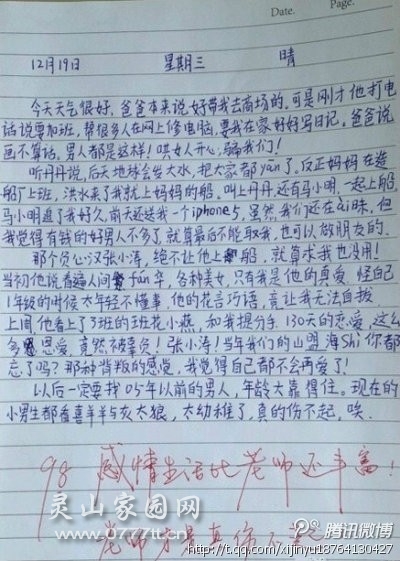 Date.    Page.
12月19日 星期三 晴
今天天气很好,爸爸本来说好带我去商场的,可是刚才他打电
话说要加班,帮很多人在网上修电脑,要我在家好好写日记。爸爸说
画不算话。男人都是这样!哄女人开心,骗我们!
听丹丹说,后天地球会发大水,把大家都yān了。反正妈妈在造
船厂上班,洪水来了我就上妈妈的船。叫上丹丹还有马小明,一起上船。
马小明追了我好久,前天还送我一个iphone5,虽然,我们还在ài昧,但
我觉得有钱的好男人不多了,就算最后不能取我,也可以做朋友的。
那个负心汉张小涛,绝不让他上船,就算求我也没用!
当初他说看遍人间fán华,各种美女,只有我是他的真爱,怪自己
1年级的时候太年轻不懂事,他的花言巧语,竟让我无法自拔
上周他看上了3班的班花小燕,和我提分手,130天的恋爱,这么
多恩爱,竟然被辜负!张小涛!当年我们的山盟海Shi你都
忘了吗?那种背叛的感觉,我觉得自己都不会再爱了!
以后一定要找05年以前的男人,年龄大靠得住。现在的
小男生都看喜羊羊与灰太狼,太幼稚了,真的伤不起,唉.
98 感情生活比老师还丰富!
老师才是真伤不起
灵山家园网
www.0777tt.cn
腾讯微博
http://t.qq.com/xijinyu18764130427